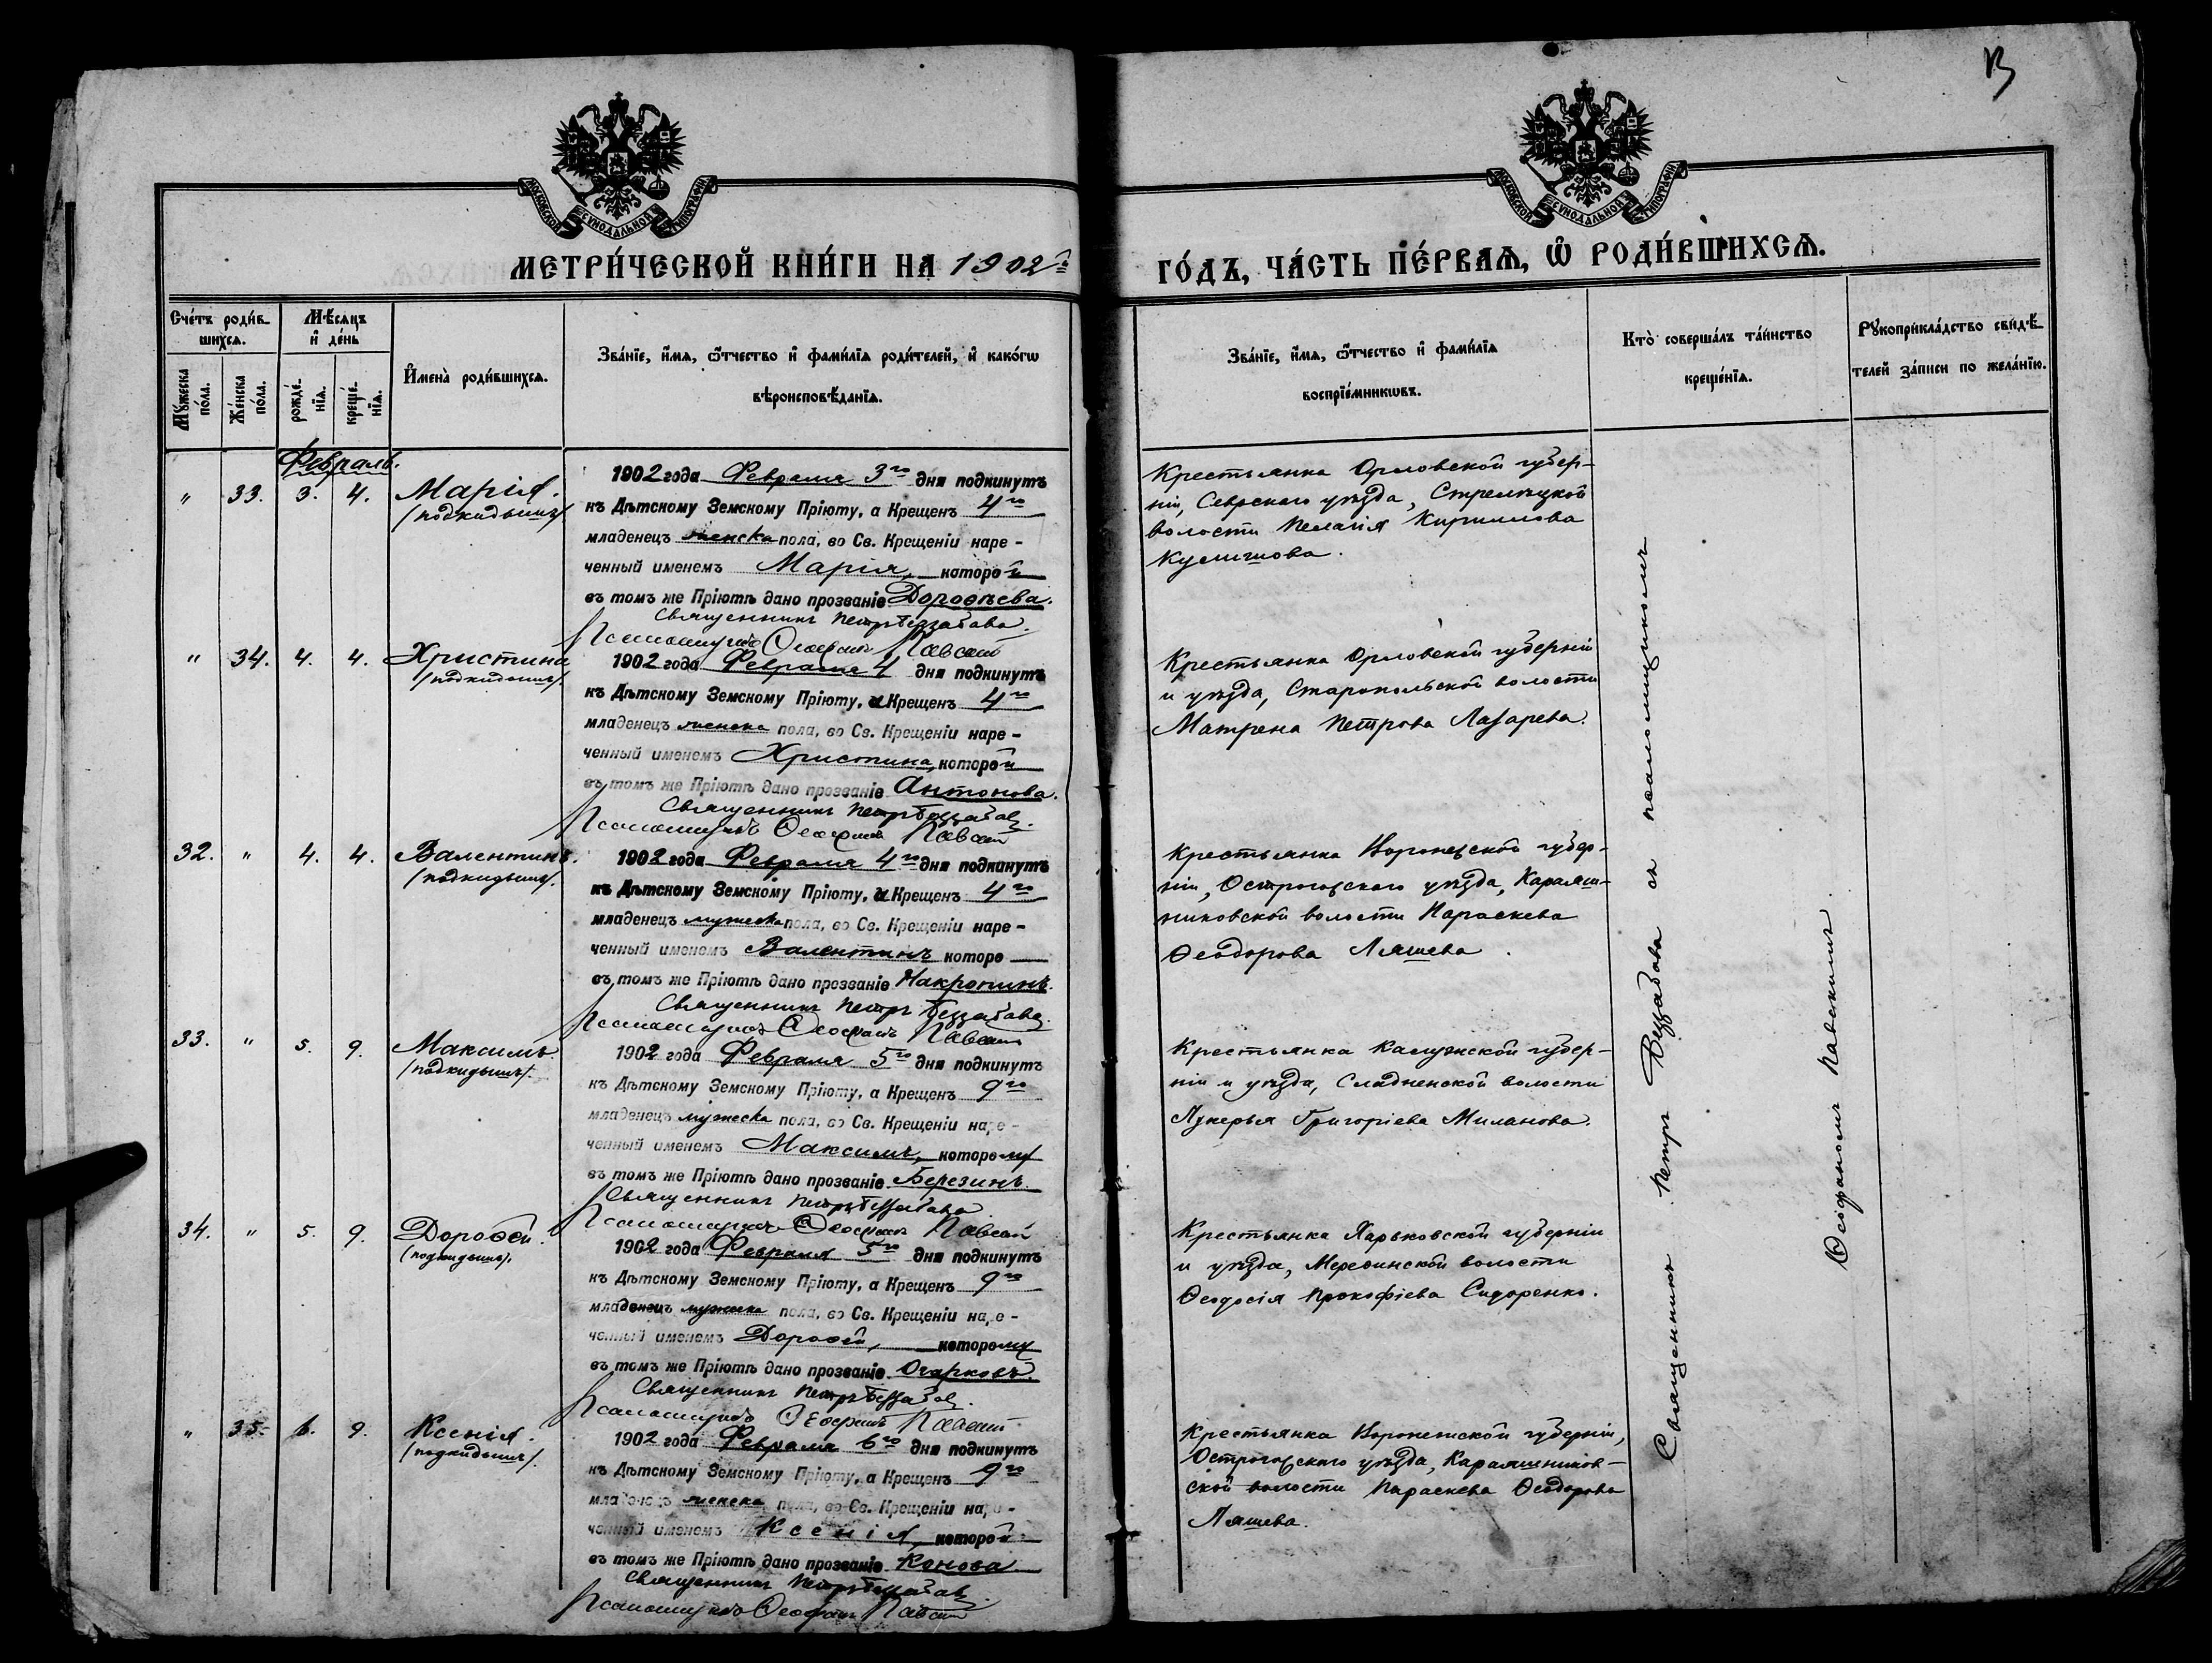 13
МОСКОВСКОЙ СУНОДАЛЬНОЙ ТИПОГРАФІИ
МОСКОВСКОЙ СУНОДАЛЬНОЙ ТИПОГРАФІИ
МЕТРИ́ЧЕСКОЙ КНИ́ГИ НА 1902й
ГО́ДЪ, ЧА́СТЬ ПЕ́РВАѦ, Ѡ҆ РОДИ́ВШИХСѦ.
Сче́тъ роди́в-
шихсѧ.
Мꙋжеска по́ла.
Же́нска по́ла.
Мѣ́сѧцъ
и҆ де́нь
рожде́-
нїѧ.
креще́-
нїѧ.
И҆мена̀ роди́вшихсѧ.
Зва́нїе, и҆́мѧ, ѻ҆́тчество и҆ фами́лїѧ роди́телей, и҆ како́гѡ
вѣроисповѣ́данїѧ.
Зва́нїе, и҆́мѧ, ѻ҆́тчество и҆ фами́лїѧ
воспрїе́мникѡвъ.
Кто̀ соверша́лъ та́инство
креще́нїѧ.
Рꙋкоприкла́дство свидѣ́-
телей за́писи по жела́нїю.
Февраль.
" 33. 3. 4. Марія.
/подкидышъ/
1902 года Февраля 3го дня подкинутъ
къ Дѣтскому Земскому Пріюту, а Крещенъ 4го
младенецъ женска пола, во Св. Крещеніи наре-
ченный именемъ Марія, которой
въ томъ же Пріютѣ дано прозваніе Дороѳѣева.
Священникъ Петръ Беззабава.
Псаломщикъ Ѳеофанъ Павскій
Крестьянка Орловской губер-
ніи, Севскаго уѣзда, Стрелецкой
волости Пелагія Кириллова
Кулешова.
" 34. 4. 4. Христина
/подкидышъ/.
1902 года Февраля 4 дня подкинутъ
къ Дѣтскому Земскому Пріюту, и Крещенъ 4го
младенецъ женска пола, во Св. Крещеніи наре-
ченный именемъ Христина, которой
въ томъ же Пріютѣ дано прозваніе Антонова.
Священникъ Петръ Беззабава.
Псаломщикъ Ѳеофанъ Павскій
Крестьянка Орловской губерніи
и уѣзда, Старопольской волости
Матрена Петрова Лазарева.
32. " 4. 4. Валентинъ.
/подкидышъ/.
1902 года Февраля 4го дня подкинутъ
къ Дѣтскому Земскому Пріюту, и Крещенъ 4го
младенецъ мужеска пола, во Св. Крещеніи наре-
ченный именемъ Валентинъ которо
въ томъ же Пріютѣ дано прозваніе Накропинъ.
Священникъ Петръ Беззабава.
Псаломщикъ Ѳеофанъ Павскій
Крестьянка Воронежской губер-
ніи, Острогожскаго уѣзда, Караяш-
никовской волости Параскева
Ѳеодорова Ляшева.
33. " 5. 9. Максимъ
/подкидышъ/.
1902 года Февраля 5го дня подкинутъ
къ Дѣтскому Земскому Пріюту, а Крещенъ 9го
младенецъ мужеска пола, во Св. Крещеніи наре-
ченный именемъ Максимъ, которому
въ томъ же Пріютѣ дано прозваніе Березинъ.
Священникъ Петръ Беззабава
Псаломщикъ Ѳеофанъ Павскій
Крестьянка Калужской губер-
ніи и уѣзда, Сладненской волости
Лукерья Григоріева Миланова.
34. " 5. 9. Дороѳей.
(подкидышъ).
1902 года Февраля 5го дня подкинутъ
къ Дѣтскому Земскому Пріюту, а Крещенъ 9го
младенецъ мужеска пола, во Св. Крещеніи наре-
ченный именемъ Дороѳей, которому
въ томъ же Пріютѣ дано прозваніе Огарковъ.
Священникъ Петръ Беззабава.
Псаломщикъ Ѳеофанъ Павскій
Крестьянка Харьковской губерніи
и уѣзда, Мерефинской волости
Ѳеодосія Прокофіева Сидоренко.
" 35. 6. 9. Ксенія.
/подкидышъ/.
1902 года Февраля 6го дня подкинутъ
къ Дѣтскому Земскому Пріюту, а Крещенъ 9го
младенецъ женска пола, во Св. Крещеніи наре-
ченный именемъ Ксенія, которой
въ томъ же Пріютѣ дано прозваніе Конова
Священникъ Петръ Беззабава.
Псаломщикъ Ѳеофанъ Павскій
Крестьянка Воронежской губерніи,
Острогожскаго уѣзда, Караяшников-
ской волости Параскева Ѳеодорова
Ляшева.
Священникъ Петръ Беззабава съ псаломщикомъ
Ѳеофаномъ Павскимъ.